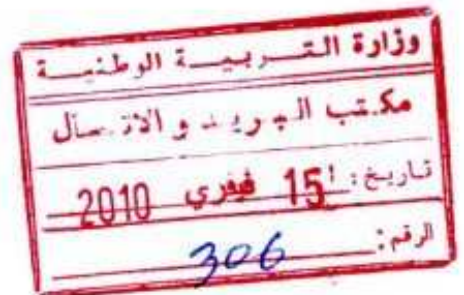 وزارة التربية الوطنية
مكتب البريد و الاتصال
تاريخ: 15 فيفري 2010
الرقم: 306